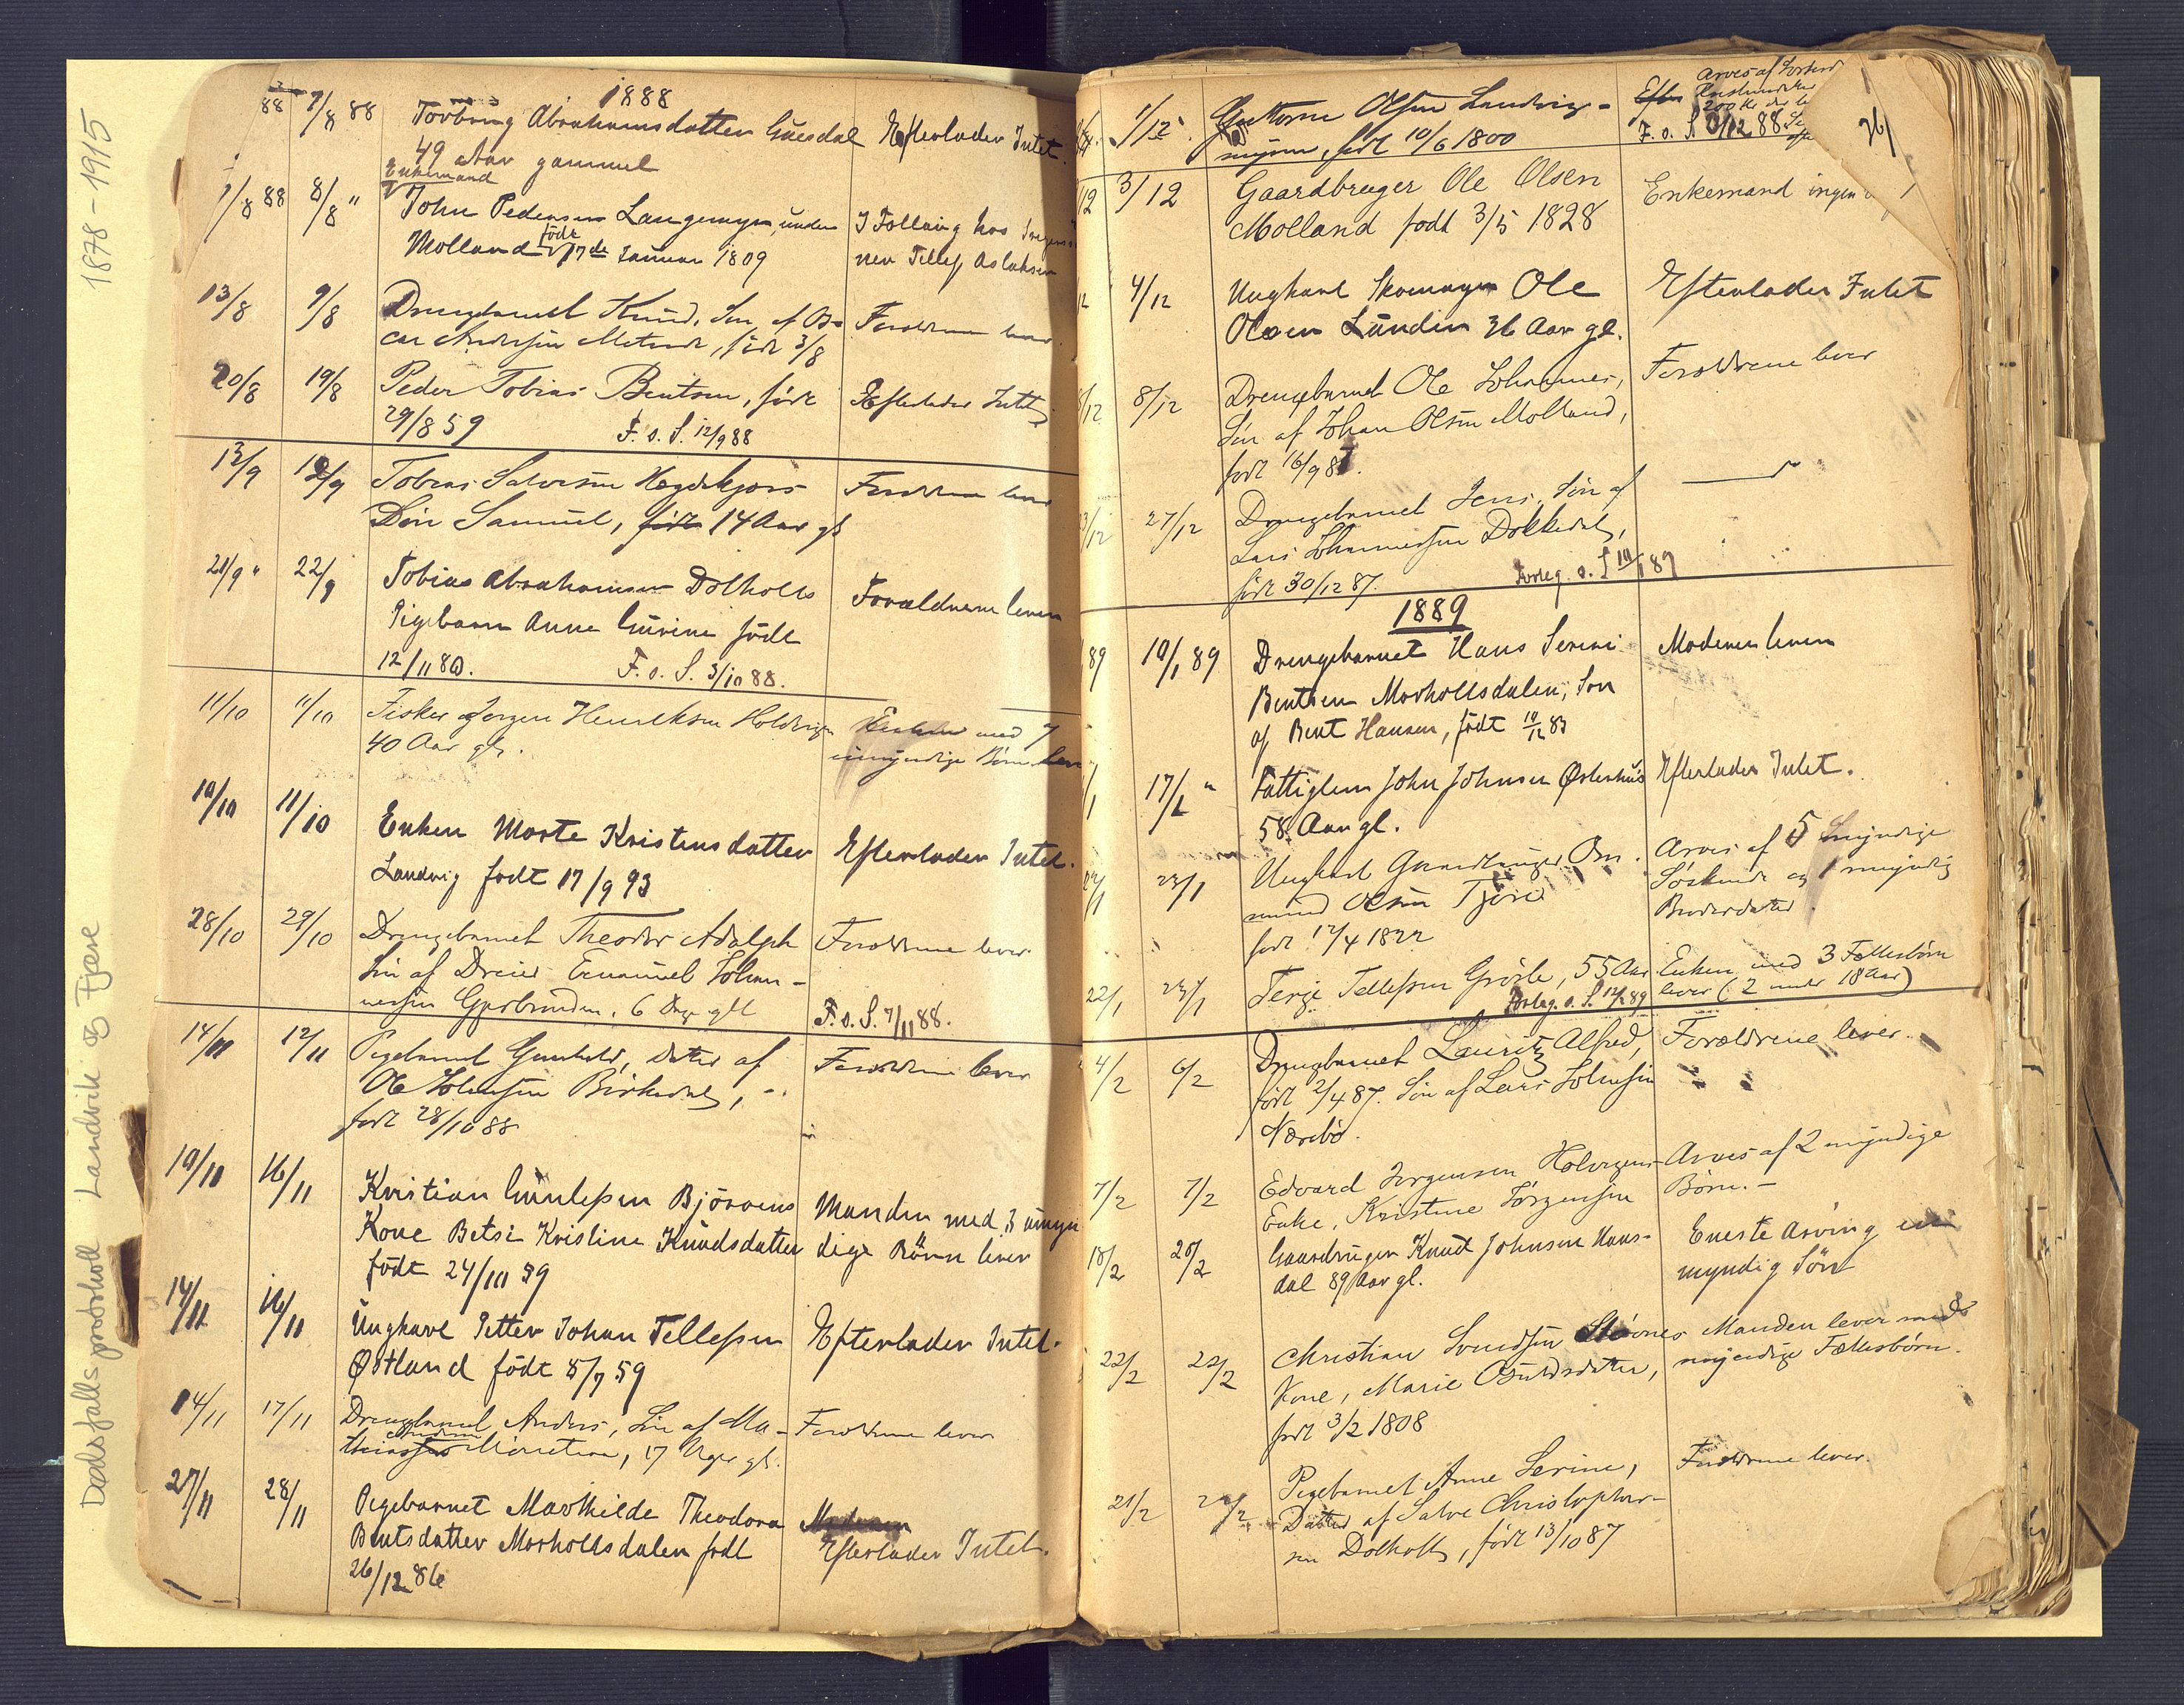 Dødsfalls protokoll Landvik og Fjære 1878-1915
1888
88 7/8 88 Torborg Abrahamsdatter Efterlader Intet.
49 Aar gammel
Enkemand
1/8 88 8/8 " John Pedersen Langemyr, under I Følling hos
Molland født 17de Januar 1809 Tellef Aslaksen
13/8 9/8 Drengebarnet Knud, Søn af Os-
car Andersen født 3/8
20/8 19/8 Peder Tobias Bentsen, født Efterlader Intet
29/8 59 F. o. S. 12/9 88
13/9 Tobias Salvesen Forældrene lever
Søn Samuel, født 14 Aar gl
21/9 " 22/9 Tobias Abrahamsen Dolholts Forældrene lever
Pigebarn Anne Gurine født
F. o. S. 3/10 88.
11/10 11/10 Fisker Jørgen Henriksen Enken med 7
40 Aar gl. umyndige Børn lever
10/10 11/10 Enken Marte Kristensdatter Efterlader Intet.
Landvig født 17/9 93
28/10 29/10 Drengebarnet Theodor Adolph Forældrene lever
Søn af Dreier Emanuel Johan-
nessen 6 Dage gl F. o. S. 7/11 88.
14/11 12/11 Pigebarnet Gunhild, Datter af Forældrene lever
Ole Johnsen Birkedal,
født 28/10 88
10/11 16/11 Kristian Gunlefsen Manden med 3 umyn
Kone Betsi Kristine Knudsdatter dige Børn lever
født 24/10 59
14/11 16/11 Ungkarl Petter Johan Tellefsen Efterlader Intet.
Østland født 5/7 59
14/11 17/11 Drengebarnet Anders, Søn af Ma- Forældrene lever
17 Uger gl.
27/11 28/11 Pigebarnet Mathilde Theodora
Bentsdatter Morholtsdalen født Efterlader Intet.
26/12 86
1/12 Guttorm Olsen Landvig- Arves af
myren, født 10/6 1800 F. o. S. 88
3/12 Gaardbruger Ole Olsen Enkemand ingen
Molland født 3/5 1828
4/12 Ungkarl Skomager Ole Efterlader Intet
Olsen Lunden 36 Aar gl.
8/12 Drengebarnet Ole Johannes, Forældrene lever
Søn af Johan Olsen Molland,
født 16/9 87.
27/12 Drengebarnet Jens, Søn af
Lars Johannessen Dolkedal,
født 30/12 87. Forleg. o. S. 89
1889
89 10/1 89 Drengebarnet Hans Severi Moderen lever
Bentsen Morholtsdalen, Søn
af Bent Hansen, født
17/1 " Fattiglem John Johnsen Østerhus Efterlader Intet.
58 Aar gl.
23/1 Ungkarl Gaardbruger Os- Arves af 5 myndige
mund Olsen Søskende og 1 myndig
født 12/4 1822 Broderdatter.
22/1 23/1 Terje Tellefsen 55 Aar Enken med 3 Fællesbørn
Forleg. o. S. 12/2 89 lever (2 under 18 Aar)
4/2 6/2 Drengebarnet Lauritz Alfred, Forældrene lever.
født 2/4 87. Søn af Lars Johnsen
7/2 7/2 Edvard Jørgensen Arves af 2 myndige
Enke, Kristine Jørgensen Børn.-
18/2 20/2 Gaardbruger Knud Johnsen Haus- Eneste Arving en
dal 89 Aar gl. myndig Søn
22/2 22/2 Christian Svendsen Manden lever med
Kone, Marie Osuldsdatter, myndige Fællesbørn.
født 3/2 1808
21/2 Pigebarnet Anne Serine, Forældrene lever.
Datter af Salve Christopher-
sen Dolholt, født 13/10 87